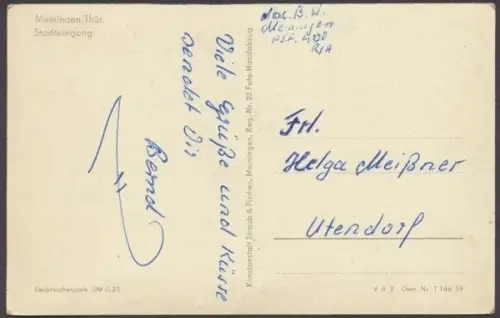 Meiningen Thür.
Stadteingang
Viele Grüße und Küsse
sendet Dir
Bernd
Verbraucherpreis DM 0,20
Kunstanstalt Straub & Fischer, Meiningen, Reg. Nr. 22 Foto-Handabzug
B. W.
Meiningen
Frl.
Helga Meißner
Utendorf
V 11 2